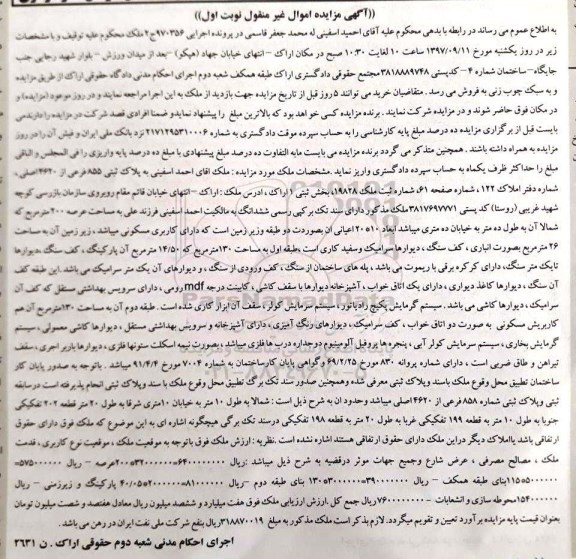 ((آگهی مزایده اموال غیر منقول نوبت اول))
به اطلاع عموم می رساند در رابطه با بدهی محکوم علیه آقای احمید اسفینی له محمد جعفر قاسمی در پرونده اجرایی ۹۷۰۳۵۶ح۲ ملک محکوم علیه توقیف و با مشخصات
زیر در روز یکشنبه مورخ ۱۳۹۷/۰۹/۱۱ ساعت ۱۰ لغایت ۱۰:۳۰ صبح در مکان اراک - انتهای خیابان جهاد (هپکو) -بعد از میدان ورزش - بلوار شهید رجایی جنب
جایگاه-ساختمان شماره ۴ -کدپستی ۳۸۱۸۸۹۷۴۸ مجتمع حقوقی دادگستری اراک طبقه همکف شعبه دوم اجرای احکام مدنی دادگاه حقوقی اراک از طریق مزایده
و به سبک چوب زنی به فروش می رسد. متقاضیان خرید می توانند ۵ روز قبل از تاریخ مزایده جهت بازدید از ملک به این اجرا مراجعه نمایند و در روز موعود (مزایده) و
در مکان فوق حاضر شوند و در مزایده شرکت نمایند. برنده مزایده کسی خواهد بود که بالاترین مبلغ را پیشنهاد نماید و ضمنا افرادی قصد شرکت در مزایده را دارند می
بایست قبل از برگزاری مزایده ده درصد مبلغ پایه کارشناسی را به حساب سپرده موقت دادگستری به شماره ۲۱۷۱۲۹۵۳۱۰۰۰۶ نزد بانک ملی ایران و فیش آن را در روز
مزایده به همراه داشته باشند. همچنین متذکر می گردد برنده مزایده می بایست مابه التفاوت ده درصد مبلغ پیشنهادی با مبلغ ده درصد پایه واریزی را فی المجلس و الباقی
مبلغ را حداکثر ظرف یکماه به حساب سپرده دادگستری واریز نماید .مشخصات ملک مورد مزایده : ملک اقای احمد اسفینی به پلاک ثبتی ۸۵۵ فرعی از ۴۶۲۰ اصلی،
شماره دفتر املاک ۱۲۲، شماره صفحه ۶۱، شماره ثبت ملک ۱۹۸۲۸، بخش ثبتی ۱ اراک ، ادرس ملک: اراک -انتهای خیابان قائم مقام روبروی سازمان بازرسی کوچه
شهید غریبی (روستا) کد پستی ۳۸۱۷۶۹۷۷۷۱ ملک مذکور دارای سند تک برگی رسمی ششدانگ به مالکیت احمد اسفینی فرزند علی به مساحت عرصه ۲۰۰ مترمربع که
شمالا آن به طول ده متر به خیابان ده متری میباشد ابعاد ۱۰*۲۰ اعیانی آن بصورت دو طبقه وزیر زمین است که دارای کاربری مسکونی میباشد ، زیر زمین آن به مساحت
۲۶ مترمربع بصورت انباری ، کف سنگ ، دیوارها سرامیک وسفید کاری است .طبقه اول به مساحت ۱۳۰مترمربع که ۱۴/۵۰ مترمربع آن پارکینگ ، کف سنگ ،دیوارها
تایک متر سنگ، دارای کرکره برقی با ریموت می باشد ، پله های ساختمان از سنگ، کف ورودی از سنگ ، و دیوارهای آن یک متر سرامیک می باشد .این طبقه کف
آن سنگ ، دیوارها کاغذ دیواری ، دارای یک اتاق خواب ، آشپزخانه دیوارها با سقف کاشی ، کابینت درجه mdf رومی ، دارای سرویس بهداشتی مستقل که کف آن
سرامیک ، دیوارها کاشی می باشد. سیستم گرمایش پکیج رادیاتور ،سیستم سرمایش کولر، سقف آن ابزار گاری شده است. طبقه دوم آن به مساحت ۱۳۰مترمربع آن هم
کاربریش مسکونی به صورت دو اتاق خواب ، کف سرامیک ، دیوارهای رنگ آمیزی ، دارای آشپزخانه و سرویس بهداشتی مستقل ، دیوارها کاشی معمولی ، سیستم
گرمایش بخاری ، سیستم سرمایش کولر آبی ، پنجره ها پروفیل آلومینیوم دوجداره درب ها فلزی میباشد ، بصورت نیمه اسکلت ستونها فلزی ، دیوارها باربر اجری ، سقف
تیراهن و طاق ضربی است ، دارای شماره پروانه ۸۳۰ مورخ ۶۹/۲/۲۵ وگواهی پایان کارساختمان به شماره ۷۰۰۴ مورخ ۹۱/۴/۴ میباشد . باتوجه به صدور پایان کار
ساختمان تطبیق محل وقوع ملک باسند وپلاک ثبتی معرفی شده وهمچنین صدور سند تک برگ تطبیق محل وقوع ملک با سند وپلاک ثبتی انجام پذیرفته است درسابقه
ثبتی وپلاک ثبتی شماره ۸۵۸ فرعی از ۴۶۲۰ اصلی میباشد وحدود ان به شرح ذیل است : شمالا به طول ۱۰ متر به خیابان ۱۰متری شرقا به طول ۲۰ متر قطعه ۲۰۲ تفکیکی
جنوبا به طول ۱۰ متر به قطعه ۱۹۹ تفکیکی غربا به طول ۲۰ متر به قطعه ۱۹۸ تفکیکی درسند تک برگی هیچگونه اشاره ای به این موضوع که ملک فوق دارای حقوق
ارتفاقی باشد یااملاک دیگر دراین ملک دارای حقوق ارتفاقی هستند اشاره نشده است .نظریه : ارزش ملک فوق باتوجه به موقعیت ملک ، موقعیت نوع کاربری ، قدمت
ملک ، مصالح مصرفی ، عرض شارع وجمیع جهات موثر درقضیه به شرح ذیل میباشد
بعنوان قیمت پایه مزایده برآورد تعیین و تقویم میگردد. لازم بذکر است ملک مذکور به مبلغ ۳۱۸۸۷۰۰۱۹ ریال بنفع شرکت ملی نفت ایران در رهن می باشد.
اجرای احکام مدنی شعبه دوم حقوقی اراک . ن ۲۶۳۱